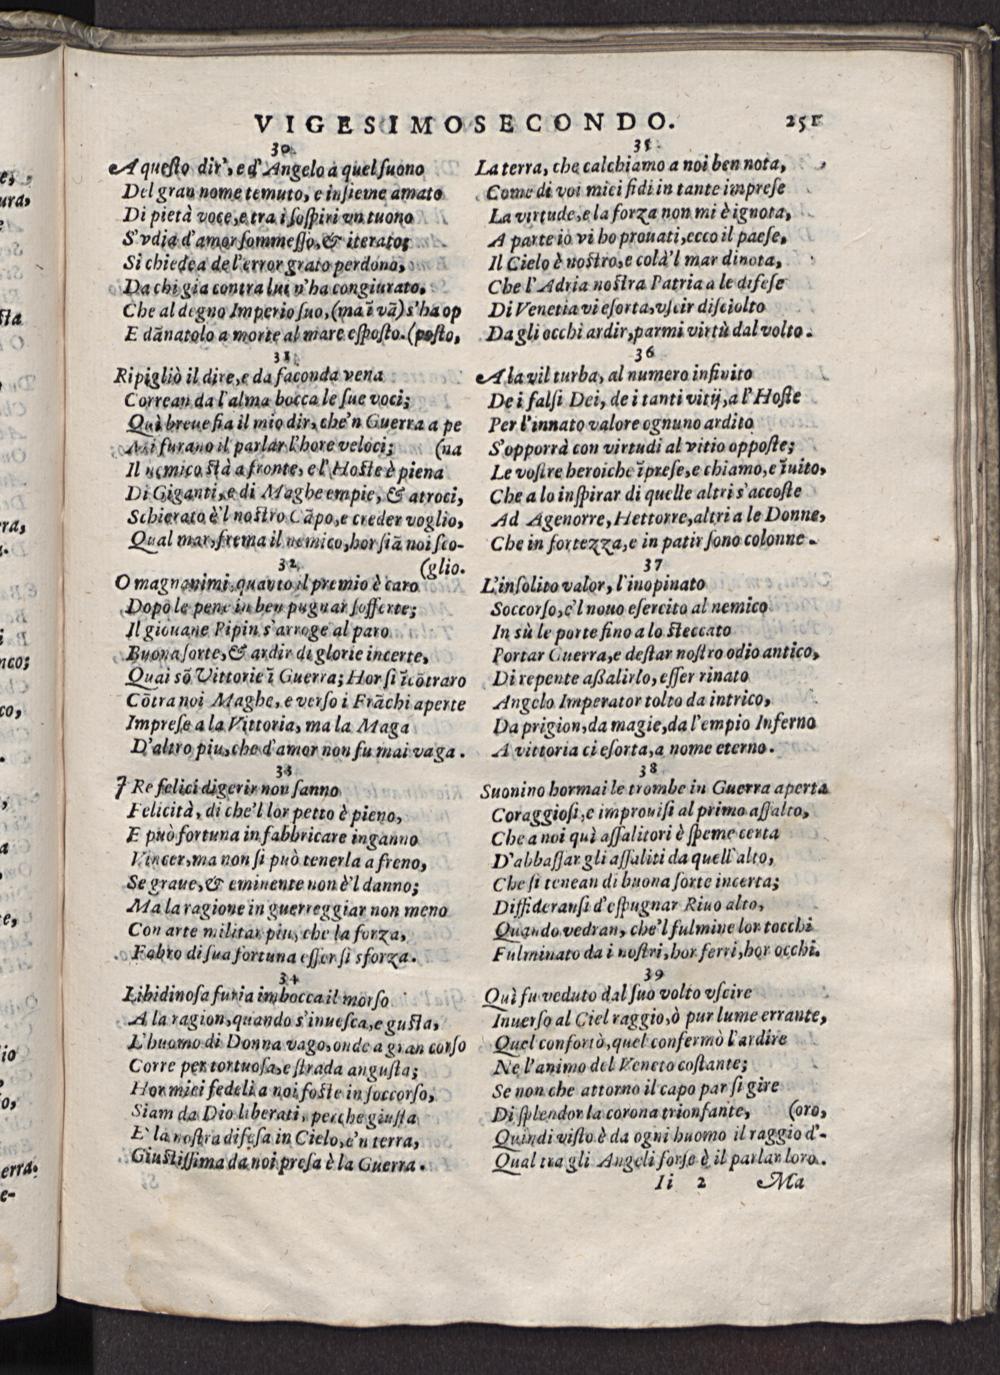 VIGESIMOSECONDO. 251
30
A questo dir', e d'Angelo a quel suono
Del gran nome temuto, e insieme amato
Di pietà voce, e tra i sospiri vn tuono
S'vdia d'amor sommesso, & iterato;
Si chiedea de l'error grato perdono,
Da chi gia contra lui n'ha congiurato,
Che al degno Imperio suo, (ma ĩ vã) s'ha op
E dãnatolo a morte al mare esposto. (posto,
31
Ripigliò il dire, e da faconda vena
Correan da l'alma bocca le sue voci;
Quì breue fia il mio dir, che'n Guerra a pe
Mi furano il parlar l'hore veloci; (na
Il nemico stà a fronte, e l'Hoste è piena
Di Giganti, e di Maghe empie, & atroci,
Schierato è'l nostro Cãpo, e creder voglio,
Qual mar, frema il nemico, hor siã noi sco-
(glio.
32
O magnanimi, quanto il premio è caro
Dopò le pene in ben pugnar sofferte;
Il giouane Pipin s'arroge al paro
Buona sorte, & ardir di glorie incerte,
Quai sõ Vittorie ĩ Guerra; Hor si ĩcõtraro
Cõtra noi Maghe, e verso i Frãchi aperte
Imprese a la Vittoria, ma la Maga
D'altro piu, che d'amor non fu mai vaga.
33
I Re felici digerir non sanno
Felicità, di che'l lor petto è pieno,
E può fortuna in fabbricare inganno
Vincer, ma non si può tenerla a freno,
Se graue, & eminente non è'l danno;
Ma la ragione in guerreggiar non meno
Con arte militar piu, che la forza,
Fabro di sua fortuna esser si sforza.
34
Libidinosa furia imbocca il morso
A la ragion, quando s'inuesca, e gusta,
L'huomo di Donna vago, onde a gran corso
Corre per tortuosa, e strada angusta;
Hor miei fedeli a noi foste in soccorso,
Siam da Dio liberati, perche giusta
E' la nostra difesa in Cielo, e'n terra,
Giustissima da noi presa è la Guerra.
35
La terra, che calchiamo a noi ben nota,
Come di voi miei fidi in tante imprese
La virtude, e la forza non mi è ignota,
A parte io vi ho prouati, ecco il paese,
Il Cielo è nostro, e colà'l mar dinota,
Che l'Adria nostra Patria a le difese
Di Venetia vi esorta, vscir disciolto
Da gli occhi ardir, parmi virtù dal volto.
36
A la vil turba, al numero infinito
De i falsi Dei, de i tanti vitij, a l'Hoste
Per l'innato valore ognuno ardito
S'opporrà con virtudi al vitio opposte;
Le vostre heroiche ĩprese, e chiamo, e ĩuito,
Che a lo inspirar di quelle altri s'accoste
Ad Agenorre, Hettorre, altri a le Donne,
Che in fortezza, e in patir sono colonne.
37
L'insolito valor, l'inopinato
Soccorso, e'l nouo esercito al nemico
In sù le porte fino a lo steccato
Portar Guerra, e destar nostro odio antico,
Di repente assalirlo, esser rinato
Angelo Imperator tolto da intrico,
Da prigion, da magie, da l'empio Inferno
A vittoria ci esorta, a nome eterno.
38
Suonino hormai le trombe in Guerra aperta
Coraggiosi, e improuisi al primo assalto,
Che a noi quì assalitori è speme certa
D'abbassar gli assaliti da quell'alto,
Che si tenean di buona sorte incerta;
Diffideransi d'espugnar Riuo alto,
Quando vedran, che'l fulmine lor tocchi
Fulminato da i nostri, hor ferri, hor occhi.
39
Quì fu veduto dal suo volto vscire
Inuerso al Ciel raggio, ò pur lume errante,
Quel confortò, quel confermò l'ardire
Ne l'animo del Veneto costante;
Se non che attorno il capo par si gire
Di splendor la corona trionfante, (oro,
Quindi visto è da ogni huomo il raggio d'-
Qual tra gli Angeli forse è il parlar loro.
Ii 2 Ma